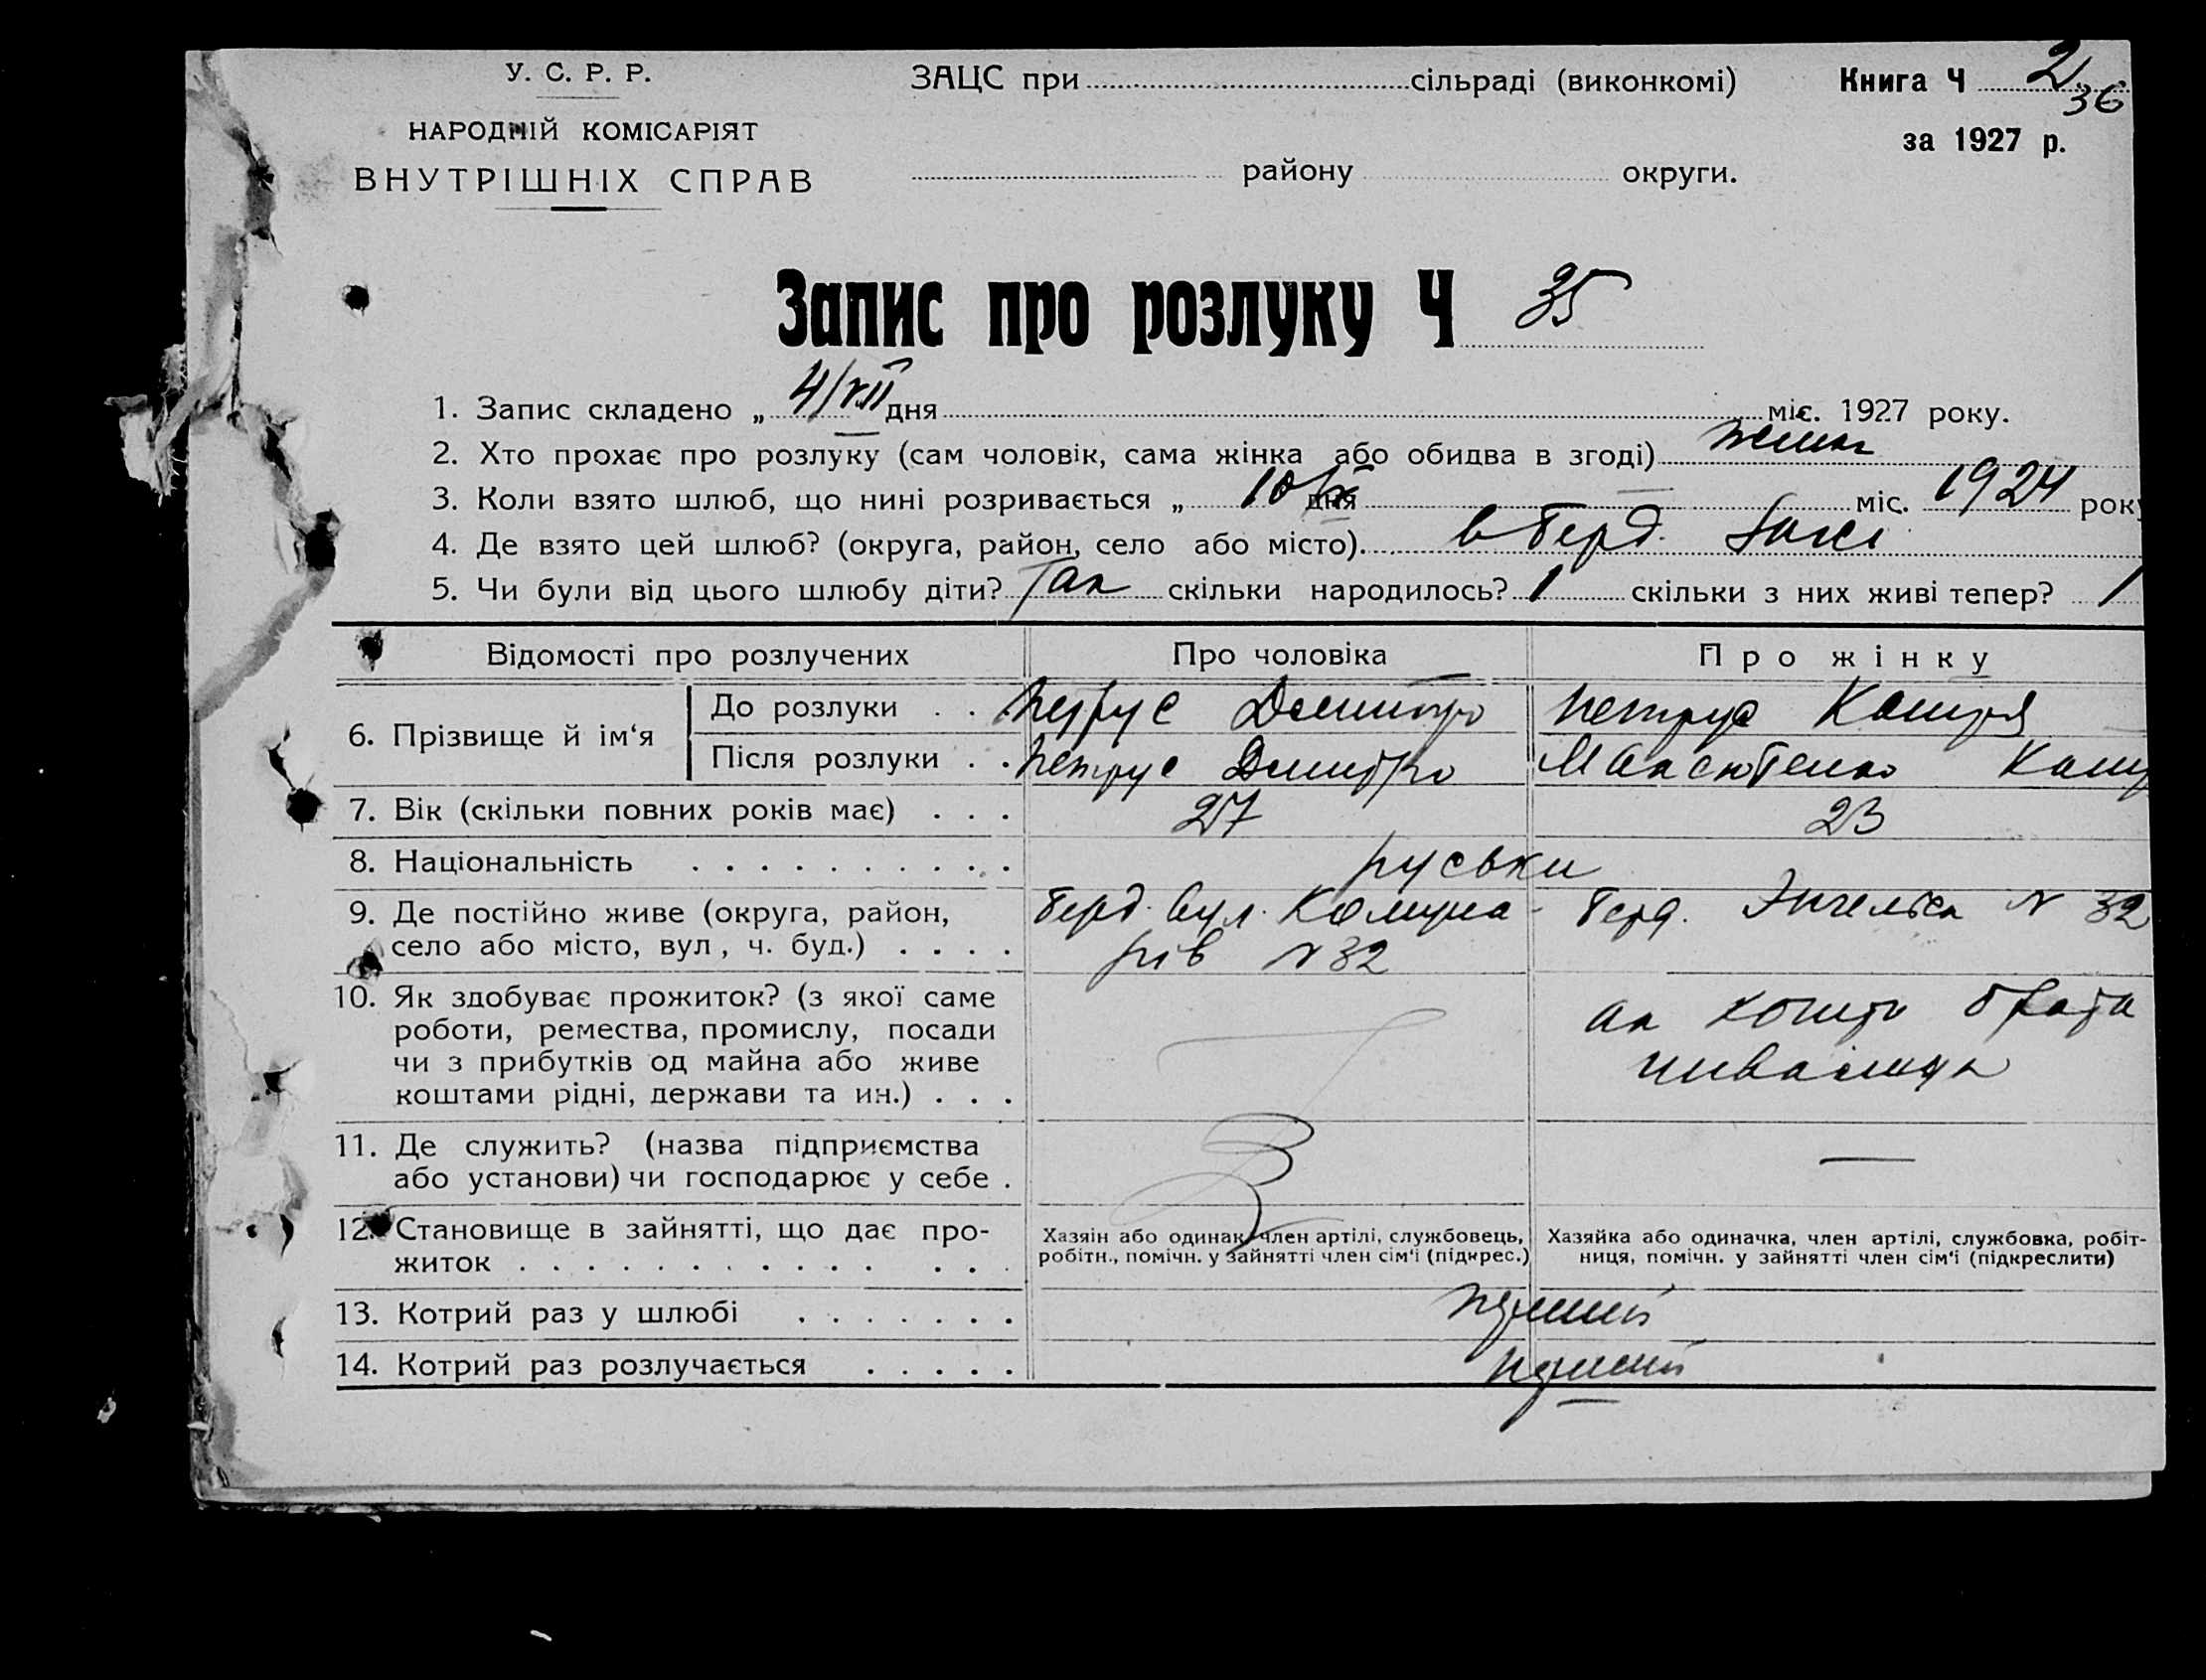 У. С. Р. Р.
НАРОДНІЙ КОМІСАРІЯТ
ВНУТРІШНІХ СПРАВ
ЗАЦС при сільраді (виконкомі)
району округи.
Книга Ч 2
36
за 1927 р.
Запис про розлуку Ч 35
1. Запис складено „ 4/VII дня міс. 1927 року.
2. Хто прохає про розлуку (сам чоловік, сама жінка або обидва в згоді)
3. Коли взято шлюб, що нині розривається „ 10/ дня міс. 1924 року
4. Де взято цей шлюб? (округа, район, село або місто). в Берд. Загсі
5. Чи були від цього шлюбу діти? Так скільки народилось? 1 скільки з них живі тепер? 1
Відомості про розлучених Про чоловіка Про жінку
6. Прізвище й ім‘я
До розлуки . . Петрус Дмитро Петрус
Після розлуки . . Петрус Дмитро Максютенко
7. Вік (скільки повних років має) . . . 27 23
8. Національність . . . . . . . . . . руськи
9. Де постійно живе (округа, район,
село або місто, вул, ч. буд.) . . . .
Берд. вул. Комуна-
рів № 32
Берд. Энгельса № 32
10. Як здобуває прожиток? (з якої саме
роботи, ремества, промислу, посади
чи з прибутків од майна або живе
коштами рідні, держави та ин.) . . .
кошти брата
11. Де служить? (назва підприємства
або установи) чи господарює у себе .
—
12. Становище в зайнятті, що дає про-
житок . . . . . . . . . . . . . .
Хазяін або одинак, член артілі, службовець,
робітн., помічн. у зайнятті член сім‘і (підкрес.)
Хазяйка або одиначка, член артілі, службовка, робіт-
ниця, помічн. у зайнятті член сім‘і (підкреслити)
13. Котрий раз у шлюбі . . . . . . .
14. Котрий раз розлучається . . . . .